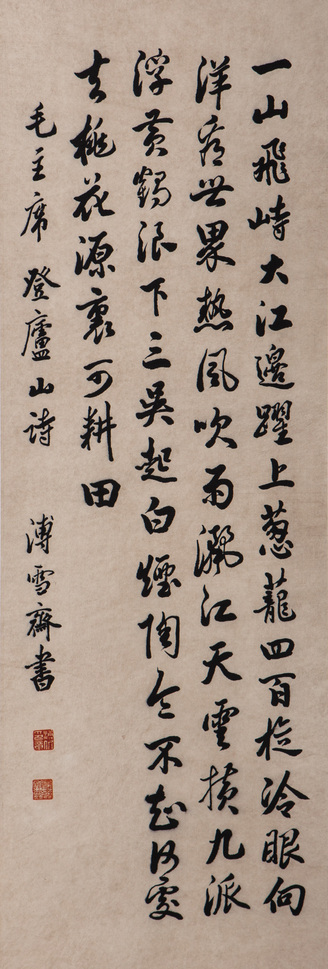 一山飛峙大江邊躍上葱蘢四百旋冷眼向
洋看世界熱風吹雨灑江天雲橫九派
浮黃鶴浪下三吳起白煙陶令不知何處
去桃花源裏可耕田
毛主席登廬山詩 溥雪齋書